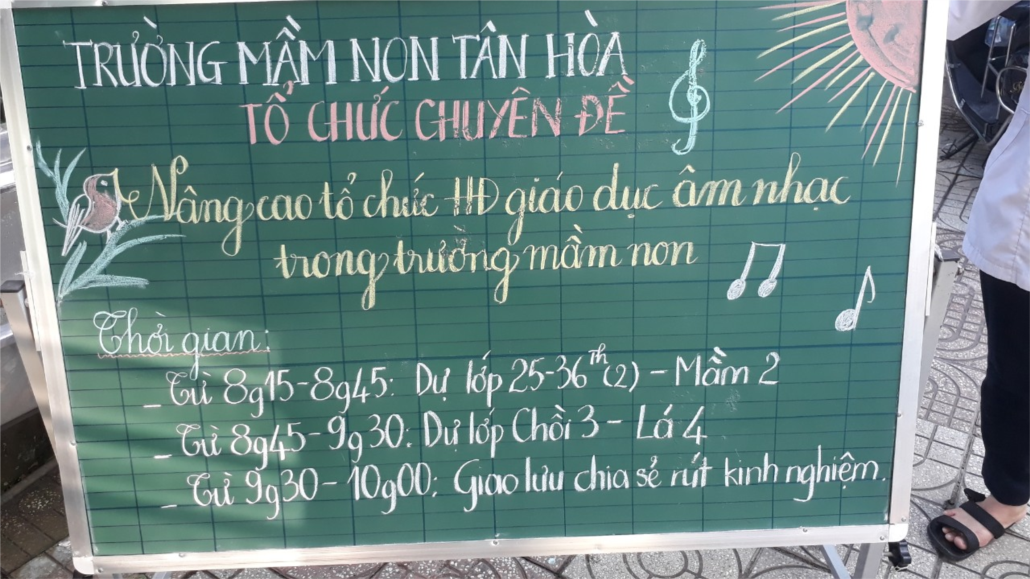 TRƯỜNG MẦM NON TÂN HÒA
TỔ CHỨC CHUYÊN ĐỀ
Nâng cao tổ chức HĐ giáo dục âm nhạc
trong trường mầm non
Thời gian:
- Từ 8g15-8g45: Dự lớp 25-36th(2) - Mầm 2
- Từ 8g45-9g30: Dự lớp Chồi 3 - Lá 4
- Từ 9g30-10g00: Giao lưu chia sẻ rút kinh nghiệm.